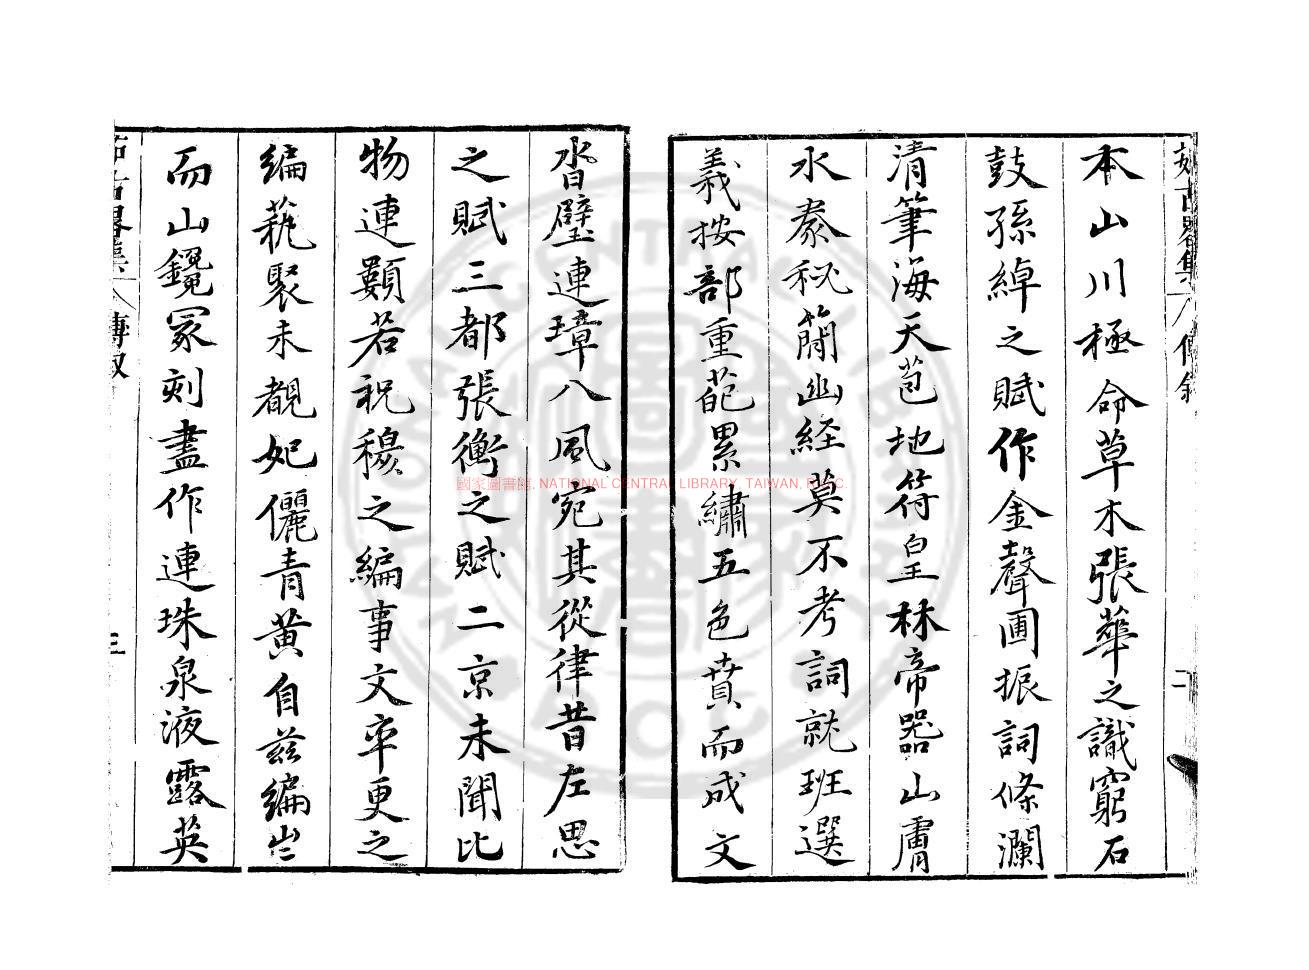 本山川極命草木張華之識窮石
鼓孫綽之賦作金聲圃振詞條瀾
清筆海天苞地符皇林帝器山膚
水豢秘簡幽経莫不考詞就班選
義按部重葩累繡五色賁而成文
沓璧連璋八風宛其從律昔左思
之賦三都張衡之賦二京未聞比
物連類若祝穆之編事文卒更之
編蓺聚未覩妃儷青黄自兹編出
而山鑱冢刻盡作連珠泉液露英
三
國家圖書館, NATIONAL CENTRAL LIBRARY, TAIWAN, R.O.C.